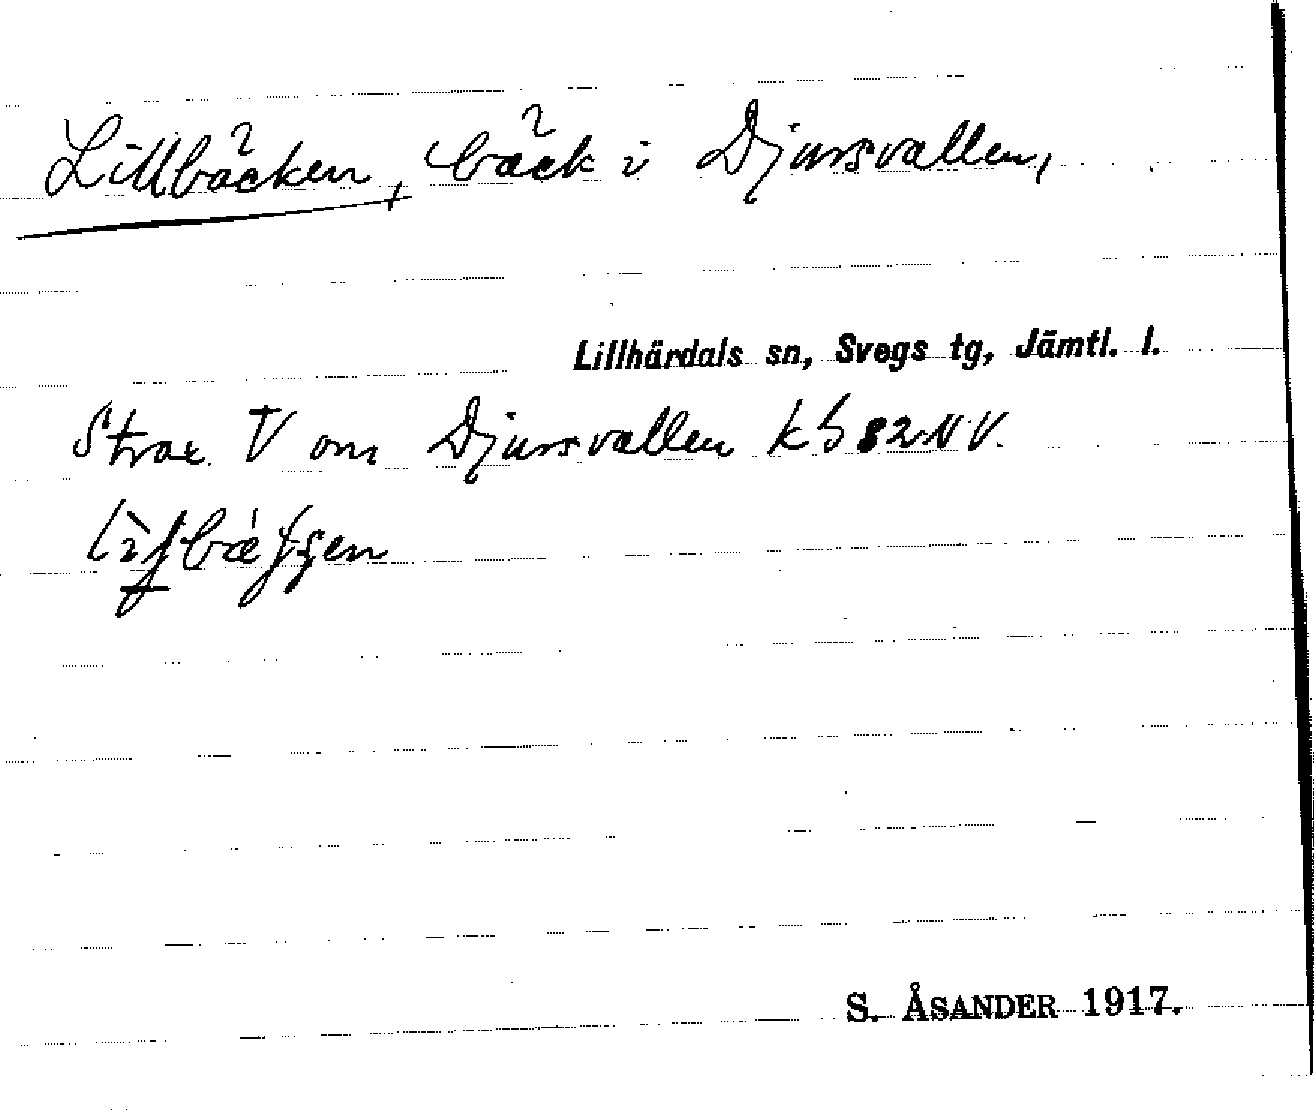 Lillbäcken, bäck i Djursvallen,
Lillhärdals sn, Svegs tg, Jämtl. l.
Strax V om Djursvallen kb 82 NV.
S. ÅSANDER 1917.